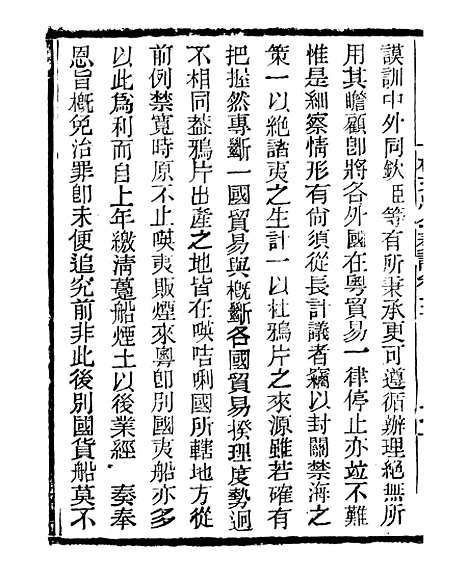 謨訓中外同欽臣等有所秉承更可遵循辦理絕無所
用其瞻顧卽將各外國在粵貿易一律停止亦竝不難
惟是細察情形有尙須從長計議者竊以封關禁海之
策一以絕諸夷之生計一以杜鴉片之來源雖若確有
把握然專斷一國貿易與槪斷各國貿易揆理度勢迥
不相同葢鴉片出產之地皆在㗲咭唎國所轄地方從
前例禁寬時原不止㗲夷販煙來粵卽別國夷船亦多
以此爲利而自上年繳淸躉船煙土以後業經　奏奉
恩旨槪免治罪卽未便追究前非此後別國貨船莫不